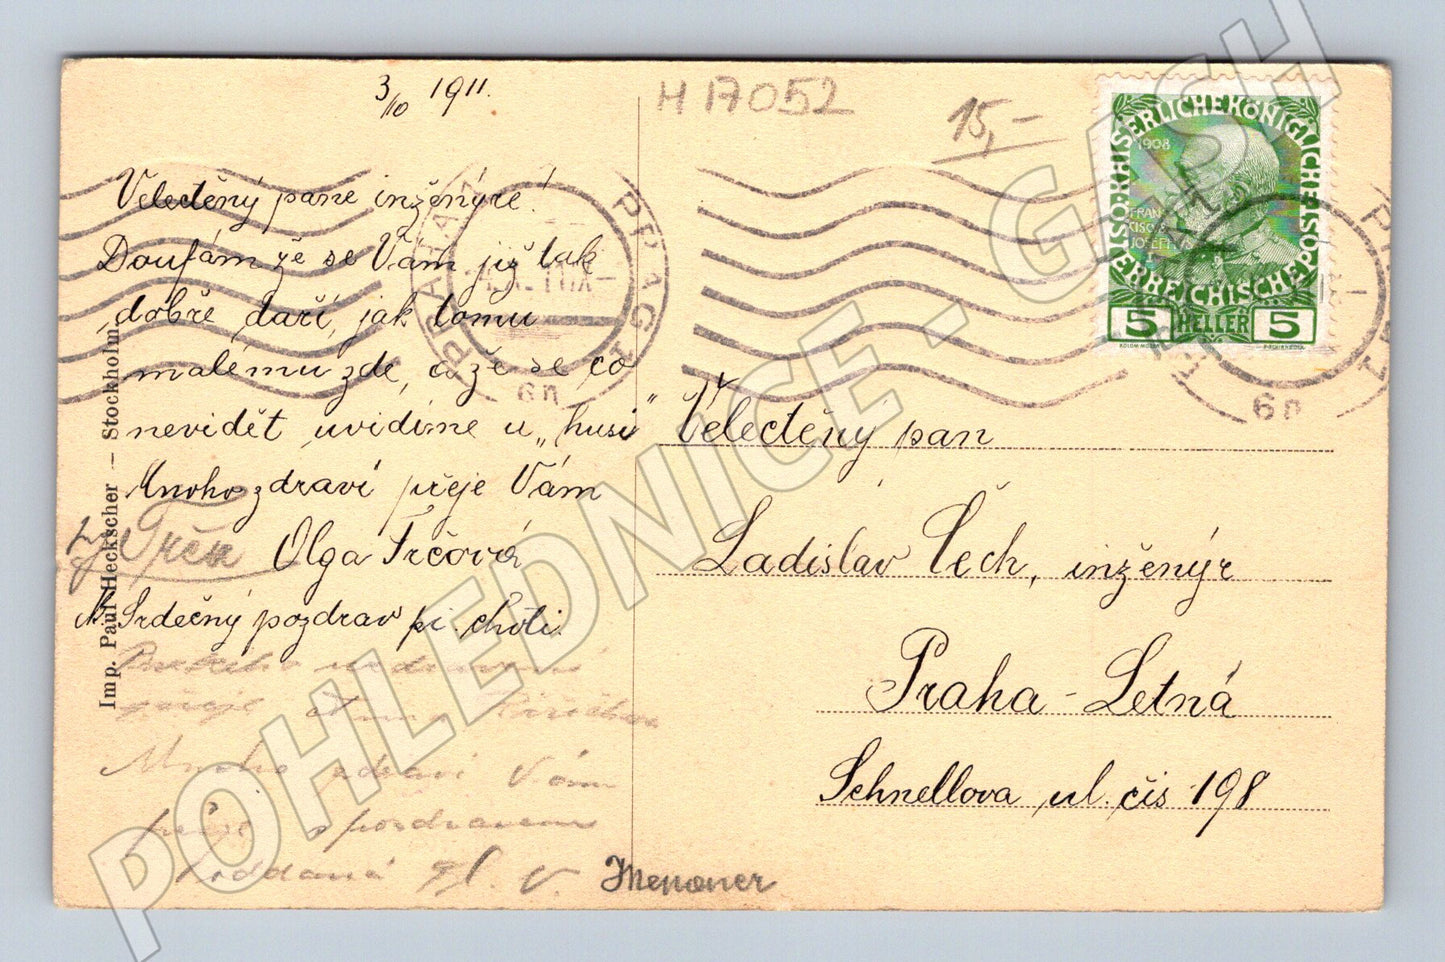 3/10 1911.
H 17052
15,-
Velectěný pane inženýre!
Doufám že se Vám již tak
dobře daří, jak tomu
malému zde, a že se co
nevidět uvidíme u „husi"
Mnoho zdraví přeje Vám
Trčka Olga Trčová
N. Srdečný pozdrav pí. choti.
Mnoho zdraví Vám
přeje s pozdravem
oddaná
Imp. Paul Heckscher – Stockholm.
PRAHA 7
PRAG 7
6n
KAISERLICHE KÖNIGLICHE ÖSTERREICHISCHE POST
1908
FRANCISCUS JOSEPHUS I
5 HELLER 5
PRAHA 7
PRAG 7
6n
Velectěný pan
Ladislav Čech, inženýr
Praha - Letná
Schnellova ul. čís 198
POHLEDNICE - GASH